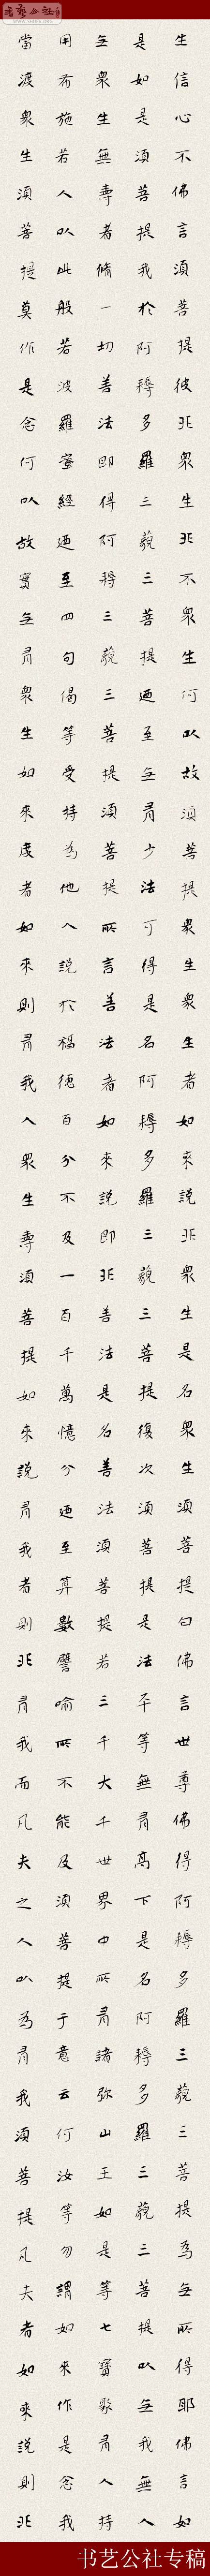 生信心不佛言須菩提彼非眾生非不眾生何以故須菩提眾生眾生者如來說非眾生是名眾生須菩提白佛言世尊佛得阿耨多羅三藐三菩提為無所得耶佛言如
是如是須菩提我於阿耨多羅三藐三菩提廼至無有少法可得是名阿耨多羅三藐三菩提復次須菩提是法平等無有高下是名阿耨多羅三藐三菩提以無我無人
無眾生無壽者脩一切善法即得阿耨三藐三菩提須菩提所言善法者如來說即非善法是名善法須菩提若三千大千世界中所有諸弥山王如是等七寶聚有人持
用布施若人以此般若波羅蜜經廼至四句偈等受持為他人說於福德百分不及一百千萬憶分廼至算數譬喻所不能及須菩提于意云何汝等勿謂如來作是念我
當渡眾生須菩提莫作是念何以故實無有眾生如來度者如來則有我人眾生壽須菩提如來說有我者則非有我而凡夫之人以為有我須菩提凡夫者如來說則非
书艺公社专稿